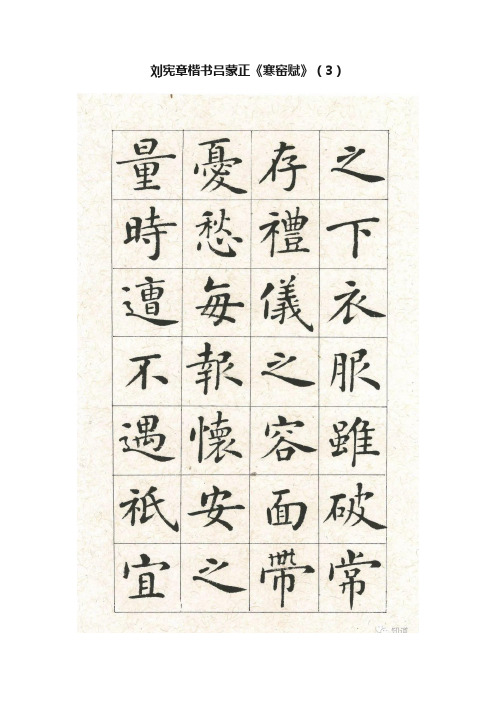 刘宪章楷书吕蒙正《寒窑赋》（3）
之下衣服雖破常
存禮儀之容面帶
憂愁每報懷安之
量時遭不遇祇宜